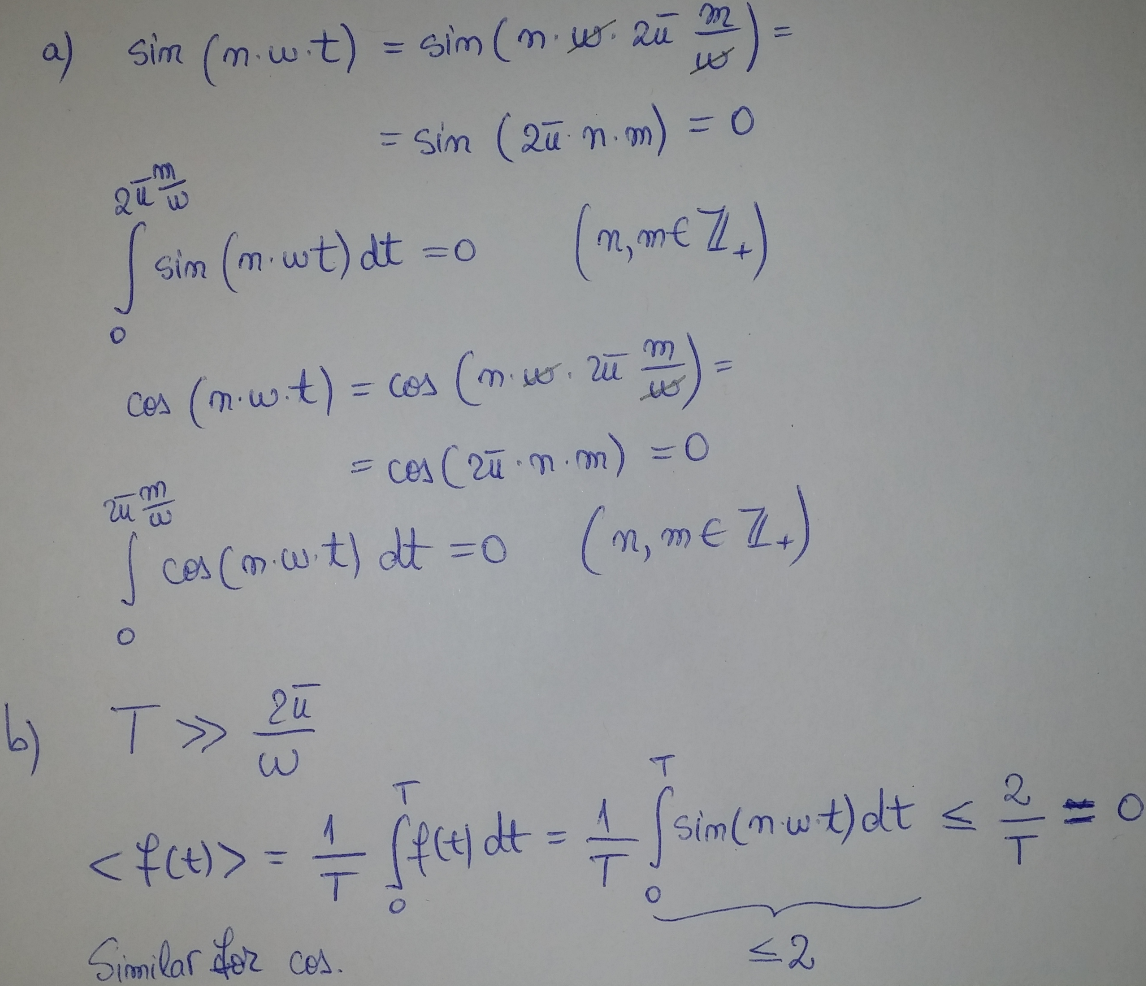 a) sin (n·w·t) = sin(n·w·2π m/w) =
= sin (2π·n·m) = 0
∫₀^(2π m/w) sin (n·wt) dt = 0 (n,m ∈ ℤ₊)
cos (n·w·t) = cos (n·w·2π m/w) =
= cos(2π·n·m) = 0
∫₀^(2π m/w) cos(n·w·t) dt = 0 (n,m ∈ ℤ₊)
b) T ≫ 2π/ω
<f(t)> = 1/T ∫₀^T f(t) dt = 1/T ∫₀^T sin(n·w·t) dt ≤ 2/T = 0
≤ 2
Similar for cos.